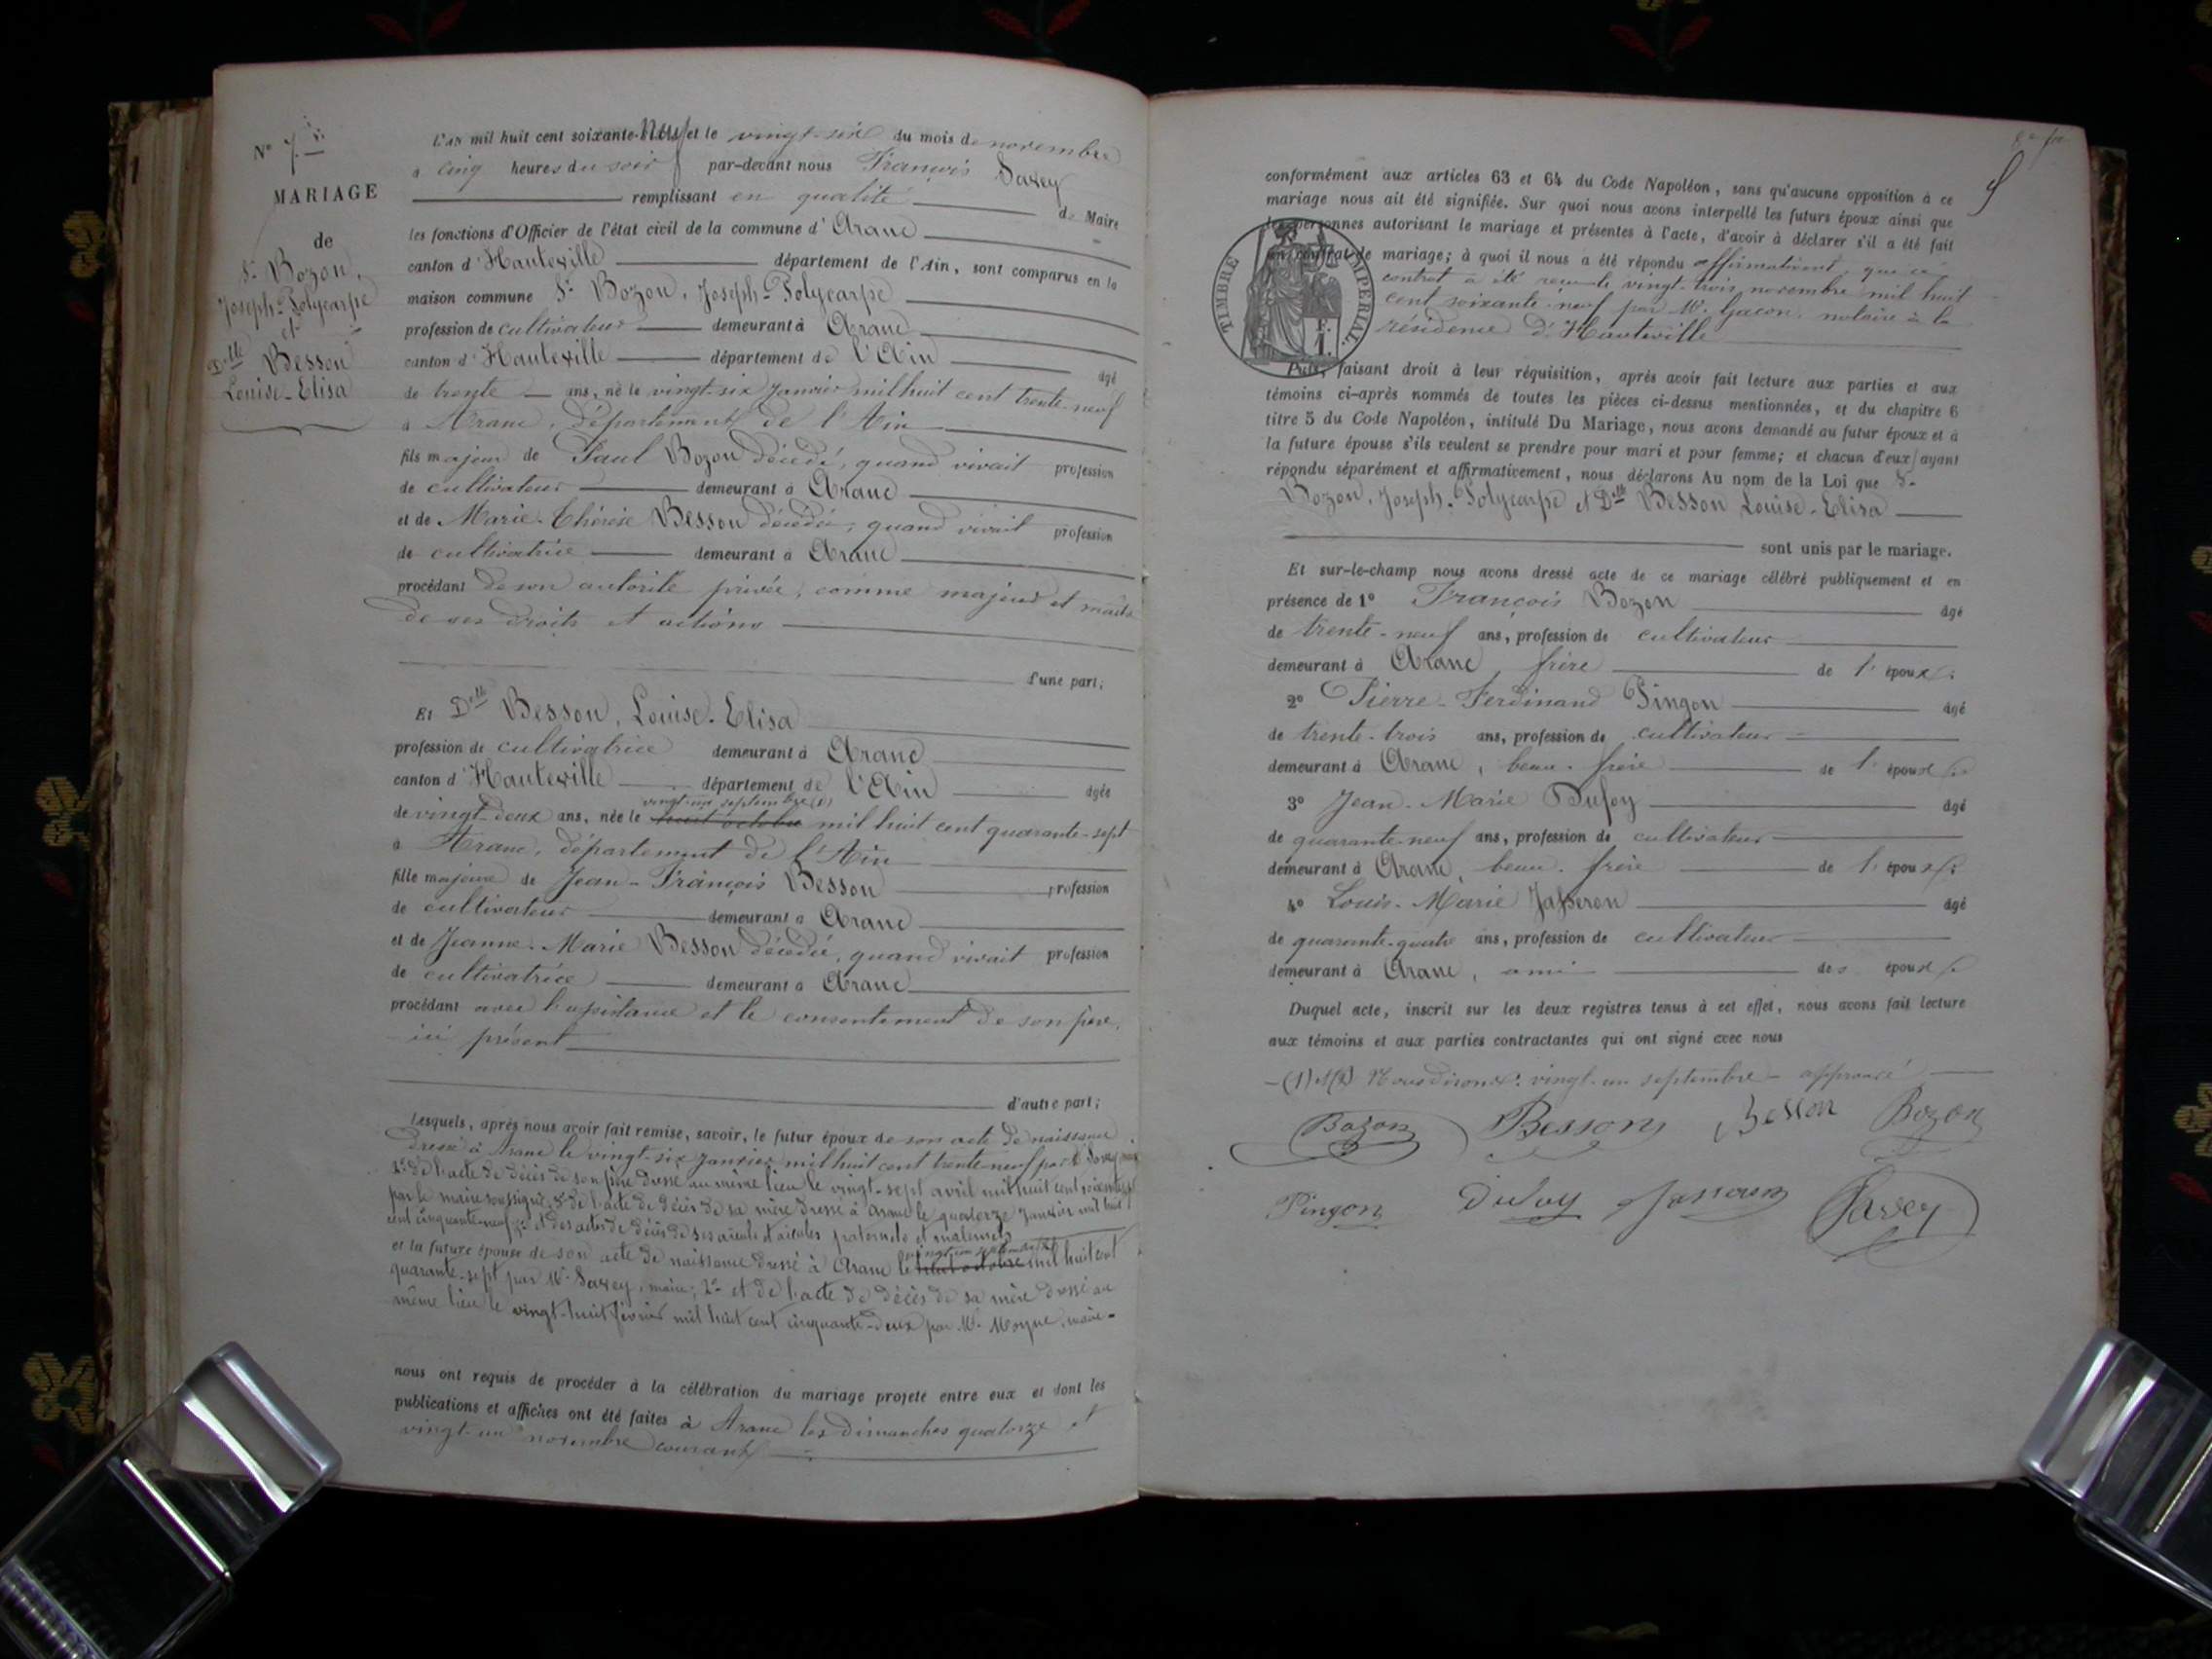 N° 7
MARIAGE
de
Sr Bozon,
Joseph-Polycarpe
et
Dlle Besson
Louise-Elisa
L'AN mil huit cent soixante-neuf et le vingt-six du mois de novembre
à cinq heures du soir par-devant nous François Savey
remplissant en qualité de Maire
les fonctions d'Officier de l'état civil de la commune d'Aranc
canton d'Hauteville département de l'Ain, sont comparus en la
maison commune Sr Bozon, Joseph-Polycarpe
profession de cultivateur demeurant à Aranc
canton d'Hauteville département de l'Ain âgé
de trente ans, né le vingt-six Janvier mil huit cent trente-neuf
à Aranc, département de l'Ain
fils majeur de Paul Bozon décédé, quand vivait profession
de cultivateur demeurant à Aranc
et de Marie-Thérèse Besson décédée, quand vivait profession
de cultivatrice demeurant à Aranc
procédant de son autorité privée, comme majeur et maître
de ses droits et actions
d'une part;
Et Dlle Besson, Louise-Elisa
profession de cultivatrice demeurant à Aranc
canton d'Hauteville département de l'Ain âgée
vingt-un septembre (1)
de vingt-deux ans, née le huit octobre mil huit cent quarante-sept
à Aranc, département de l'Ain
fille majeure de Jean-François Besson profession
de cultivateur demeurant à Aranc
et de Jeanne-Marie Besson décédée, quand vivait profession
de cultivatrice demeurant à Aranc
procédant avec l'assistance et le consentement de son père,
ici présent
d'autre part;
Lesquels, après nous avoir fait remise, savoir, le futur époux de son acte de naissance
dressé à Aranc le vingt-six Janvier mil huit cent trente-neuf par M. Savey
2° de l'acte de décès de son père dressé au même lieu le vingt-sept avril mil huit cent soixante
par le maire soussigné; 3° de l'acte de décès de sa mère dressé à Aranc le quatorze Janvier mil huit
cent cinquante-neuf et des actes de décès de ses aïeuls et aïeules paternels et maternels
vingt-un septembre (2)
et la future épouse de son acte de naissance dressé à Aranc le huit octobre mil huit cent
quarante-sept par Mr Savey, maire; 2° et de l'acte de décès de sa mère dressé au
même lieu le vingt-huit février mil huit cent cinquante-deux par M. Moyne, maire-
nous ont requis de procéder à la célébration du mariage projeté entre eux et dont les
publications et affiches ont été faites à Aranc les dimanches quatorze et
vingt-un novembre courant
conformément aux articles 63 et 64 du Code Napoléon, sans qu'aucune opposition à ce
mariage nous ait été signifiée. Sur quoi nous avons interpellé les futurs époux ainsi que
les personnes autorisant le mariage et présentes à l'acte, d'avoir à déclarer s'il a été fait
un contrat de mariage; à quoi il nous a été répondu affirmativement, que ce
contrat a été reçu le vingt-trois novembre mil huit
cent soixante-neuf par Mr. Gacon, notaire à la
résidence d'Hauteville
TIMBRE IMPERIAL.
Puis, faisant droit à leur réquisition, après avoir fait lecture aux parties et aux
témoins ci-après nommés de toutes les pièces ci-dessus mentionnées, et du chapitre 6
titre 5 du Code Napoléon, intitulé Du Mariage, nous avons demandé au futur époux et à
la future épouse s'ils veulent se prendre pour mari et pour femme; et chacun d'eux ayant
répondu séparément et affirmativement, nous déclarons Au nom de la Loi que Sr
Bozon, Joseph-Polycarpe et Dlle Besson Louise-Elisa
sont unis par le mariage.
Et sur-le-champ nous avons dressé acte de ce mariage célébré publiquement et en
présence de 1° François Bozon âgé
de trente-neuf ans, profession de cultivateur
demeurant à Aranc frère de l'époux
2° Pierre-Ferdinand Pingon âgé
de trente-trois ans, profession de cultivateur
demeurant à Aranc, beau-frère de l'époux
3° Jean-Marie Dufoy âgé
de quarante-neuf ans, profession de cultivateur
demeurant à Aranc, beau-frère de l'époux
4° Louis-Marie Jasseron âgé
de quarante-quatre ans, profession de cultivateur
demeurant à Aranc, ami des époux
Duquel acte, inscrit sur les deux registres tenus à cet effet, nous avons fait lecture
aux témoins et aux parties contractantes qui ont signé avec nous
-(1) et (2) Nous disons: vingt-un septembre - approuvé
Bozon Besson Besson Bozon
Pingon Dufoy Jasseron Savey